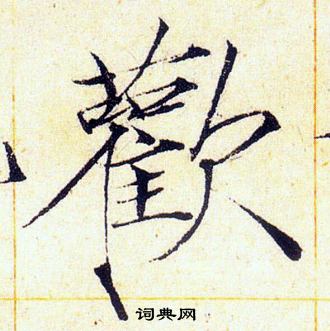 歡
词典网